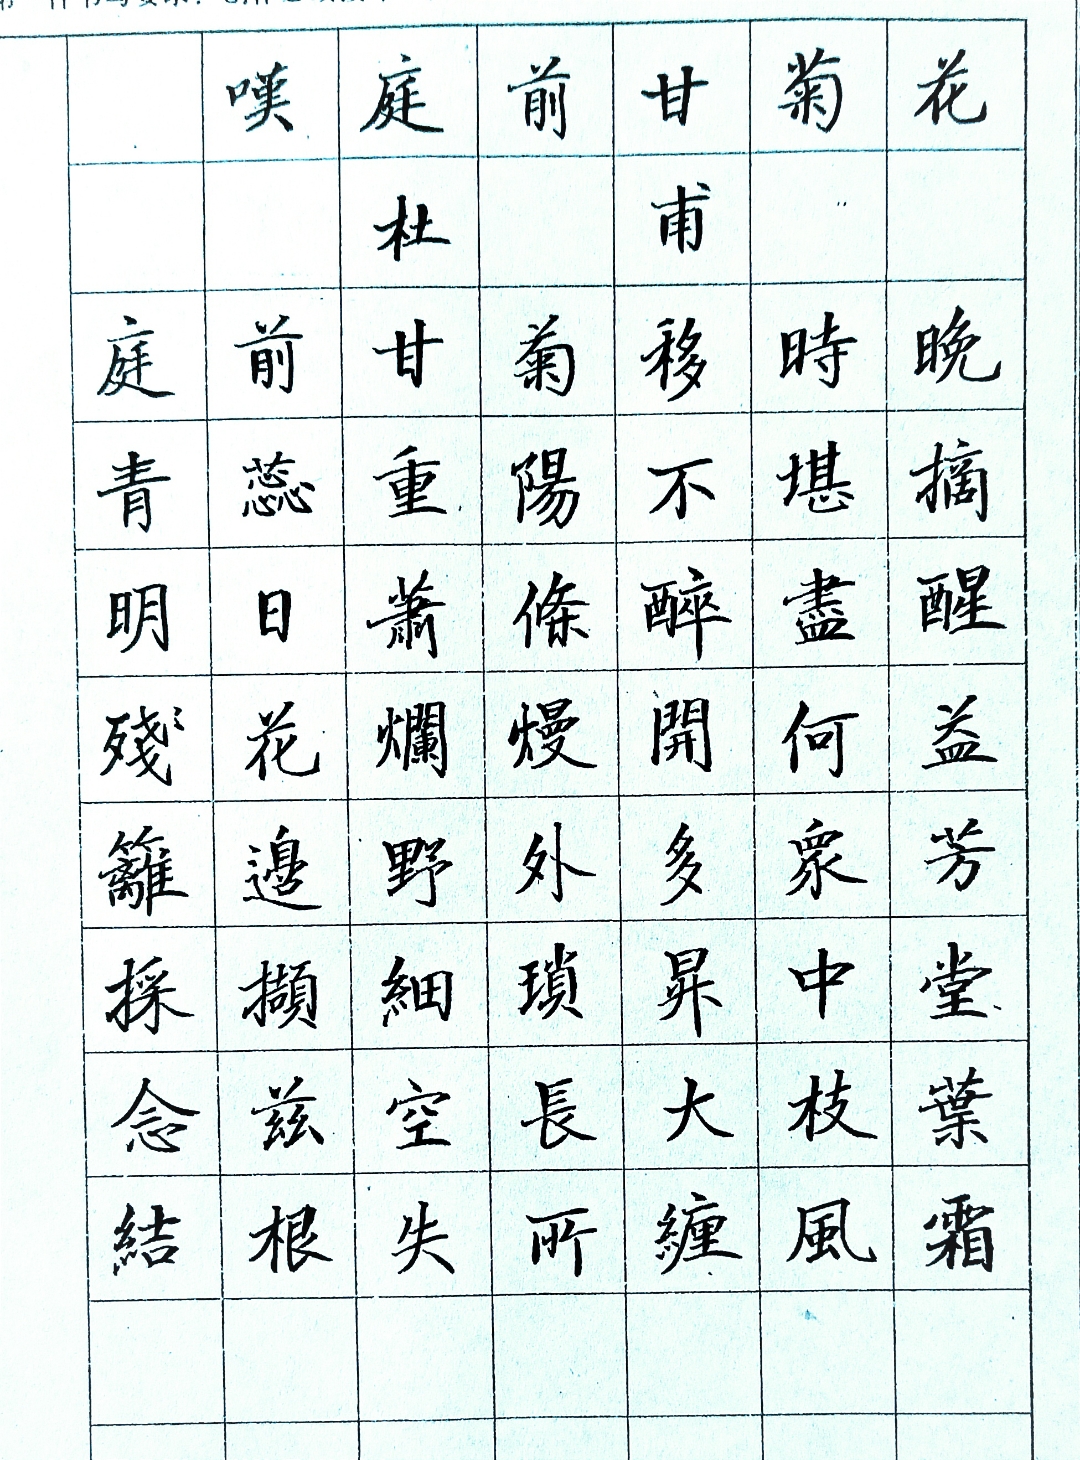 嘆庭前甘菊花
杜甫
庭前甘菊移時晚
青蕊重陽不堪摘
明日蕭條醉盡醒
殘花爛熳開何益
籬邊野外多衆芳
採擷細瑣昇中堂
念茲空長大枝葉
結根失所纏風霜